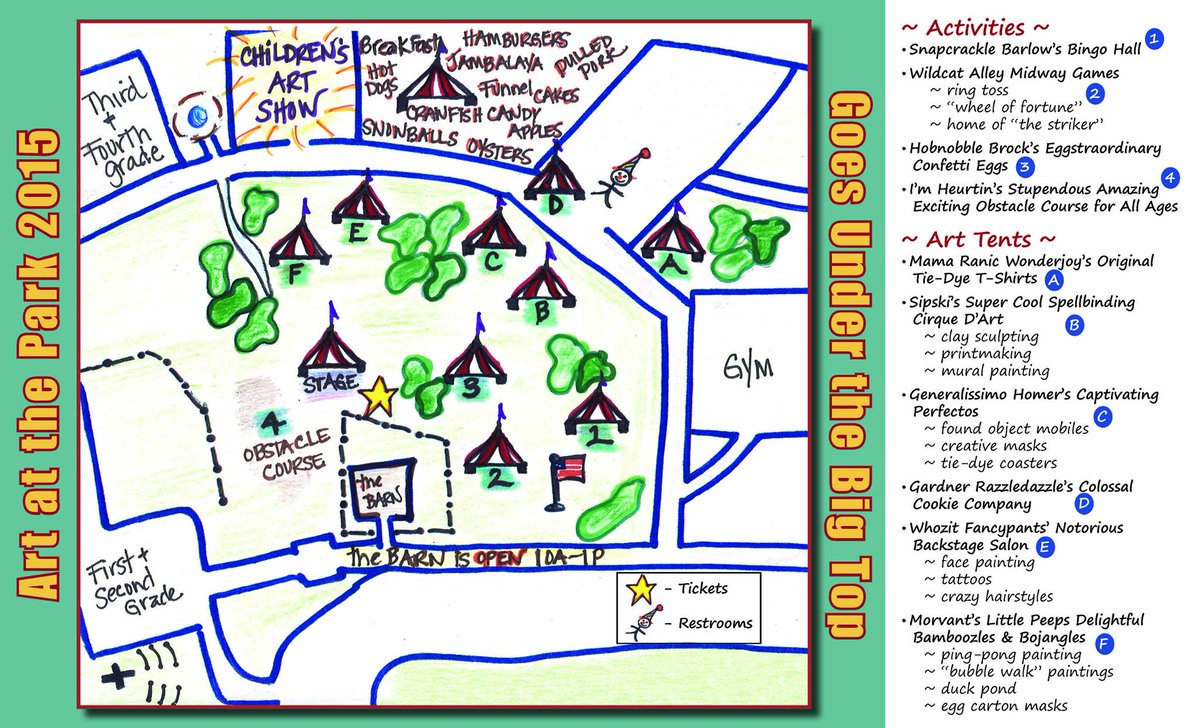 Art at the Park 2015
Goes Under the Big Top
Third
+
Fourth
grade
CHILDREN'S
ART
SHOW
Breakfast
HAMBURGERS
JAMBALAYA
PULLED
PORK
HOT
DOGS
Funnel CAKES
CRAWFISH CANDY
APPLES
SNOWBALLS OYSTERS
D
E
C
F
A
B
STAGE
3
GYM
4
OBSTACLE
COURSE
1
2
the
BARN
the BARN is OPEN 10A-1P
First +
Second
Grade
- Tickets
- Restrooms
~ Activities ~
• Snapcrackle Barlow's Bingo Hall 1
• Wildcat Alley Midway Games
~ ring toss
2
~ "wheel of fortune"
~ home of "the striker"
• Hobnobble Brock's Eggstraordinary
Confetti Eggs 3
• I'm Heurtin's Stupendous Amazing 4
Exciting Obstacle Course for All Ages
~ Art Tents ~
• Mama Ranic Wonderjoy's Original
Tie-Dye T-Shirts A
• Sipski's Super Cool Spellbinding
Cirque D'Art B
~ clay sculpting
~ printmaking
~ mural painting
• Generalissimo Homer's Captivating
Perfectos C
~ found object mobiles
~ creative masks
~ tie-dye coasters
• Gardner Razzledazzle's Colossal
Cookie Company D
• Whozit Fancypants' Notorious
Backstage Salon E
~ face painting
~ tattoos
~ crazy hairstyles
• Morvant's Little Peeps Delightful
Bamboozles & Bojangles F
~ ping-pong painting
~ "bubble walk" paintings
~ duck pond
~ egg carton masks